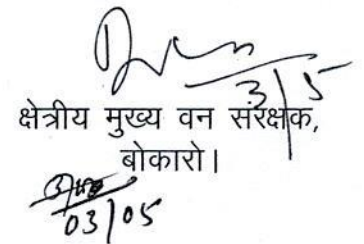 3/5
क्षेत्रीय मुख्य वन संरक्षक,
बोकारो।
03/05